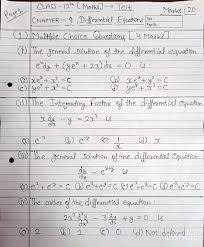 Page 1
CLASS-12th [Maths] → Test. Marks: 20
CHAPTER-9 Differential Equations
(1) Multiple Choice Questions [4 Marks]
(i) The general solution of the differential equation
e^x dy + (ye^x + 2x) dx = 0 is
(a) xe^y + x² = C (b) xe^y + y² = C
(c) ye^x + x² = C (d) ye^y + x² = C
(ii) The Integrating Factor of the differential equation
x dy/dx - y = 2x² is
(a) e^-x (b) e^-y (c) 1/x (d) x
(iii) The general solution of the differential equation
dy/dx = e^x+y is
(iv) The order of the differential equation:
2x² d²y/dx² - 3 dy/dx + y = 0 is
(a) 2 (b) 1 (c) 0 (d) Not defined